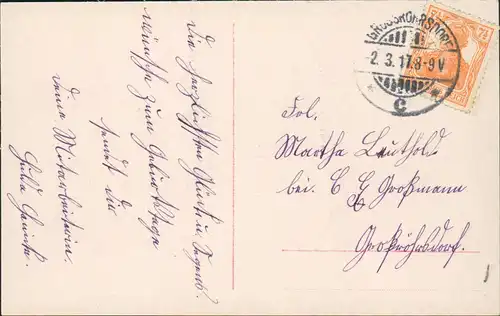 Die herzlichsten Glück u. Segens-
wünsche zum Geburtstage
sendet Dir
deine Mitarbeiterin
Hulda
GROSSRÖHRSDORF
2.3.17.8-9V
* c *
7½
Frl.
Martha Leuthold
bei. C G Großmann
Großröhrsdorf.